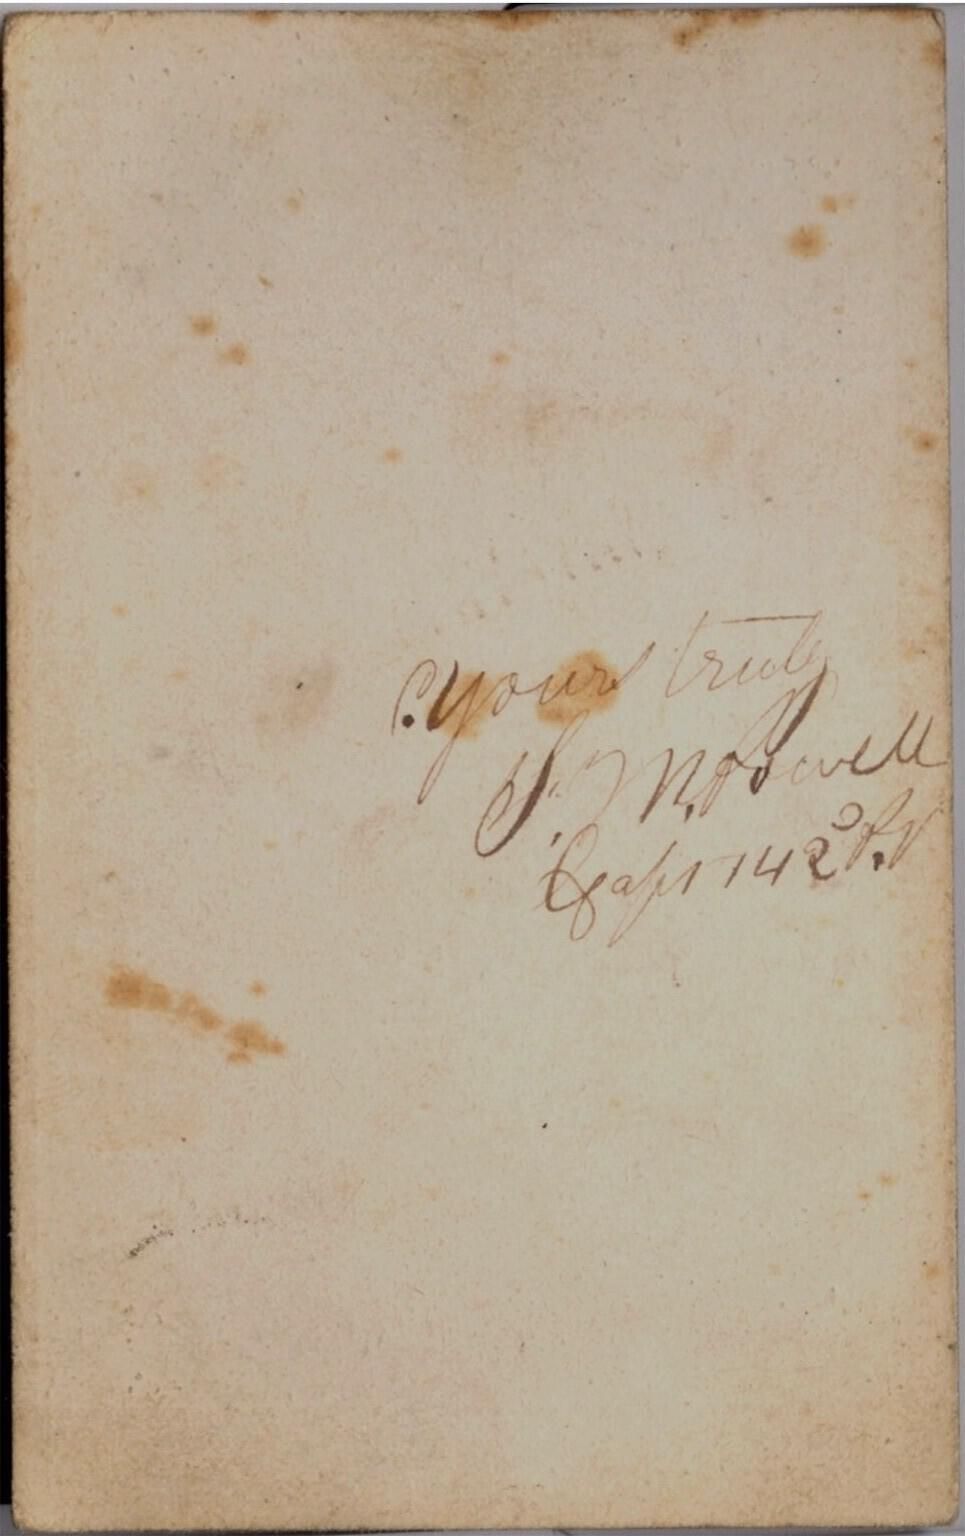 Yours truly
S. M. Powell
Capt 142ᴰ P.V